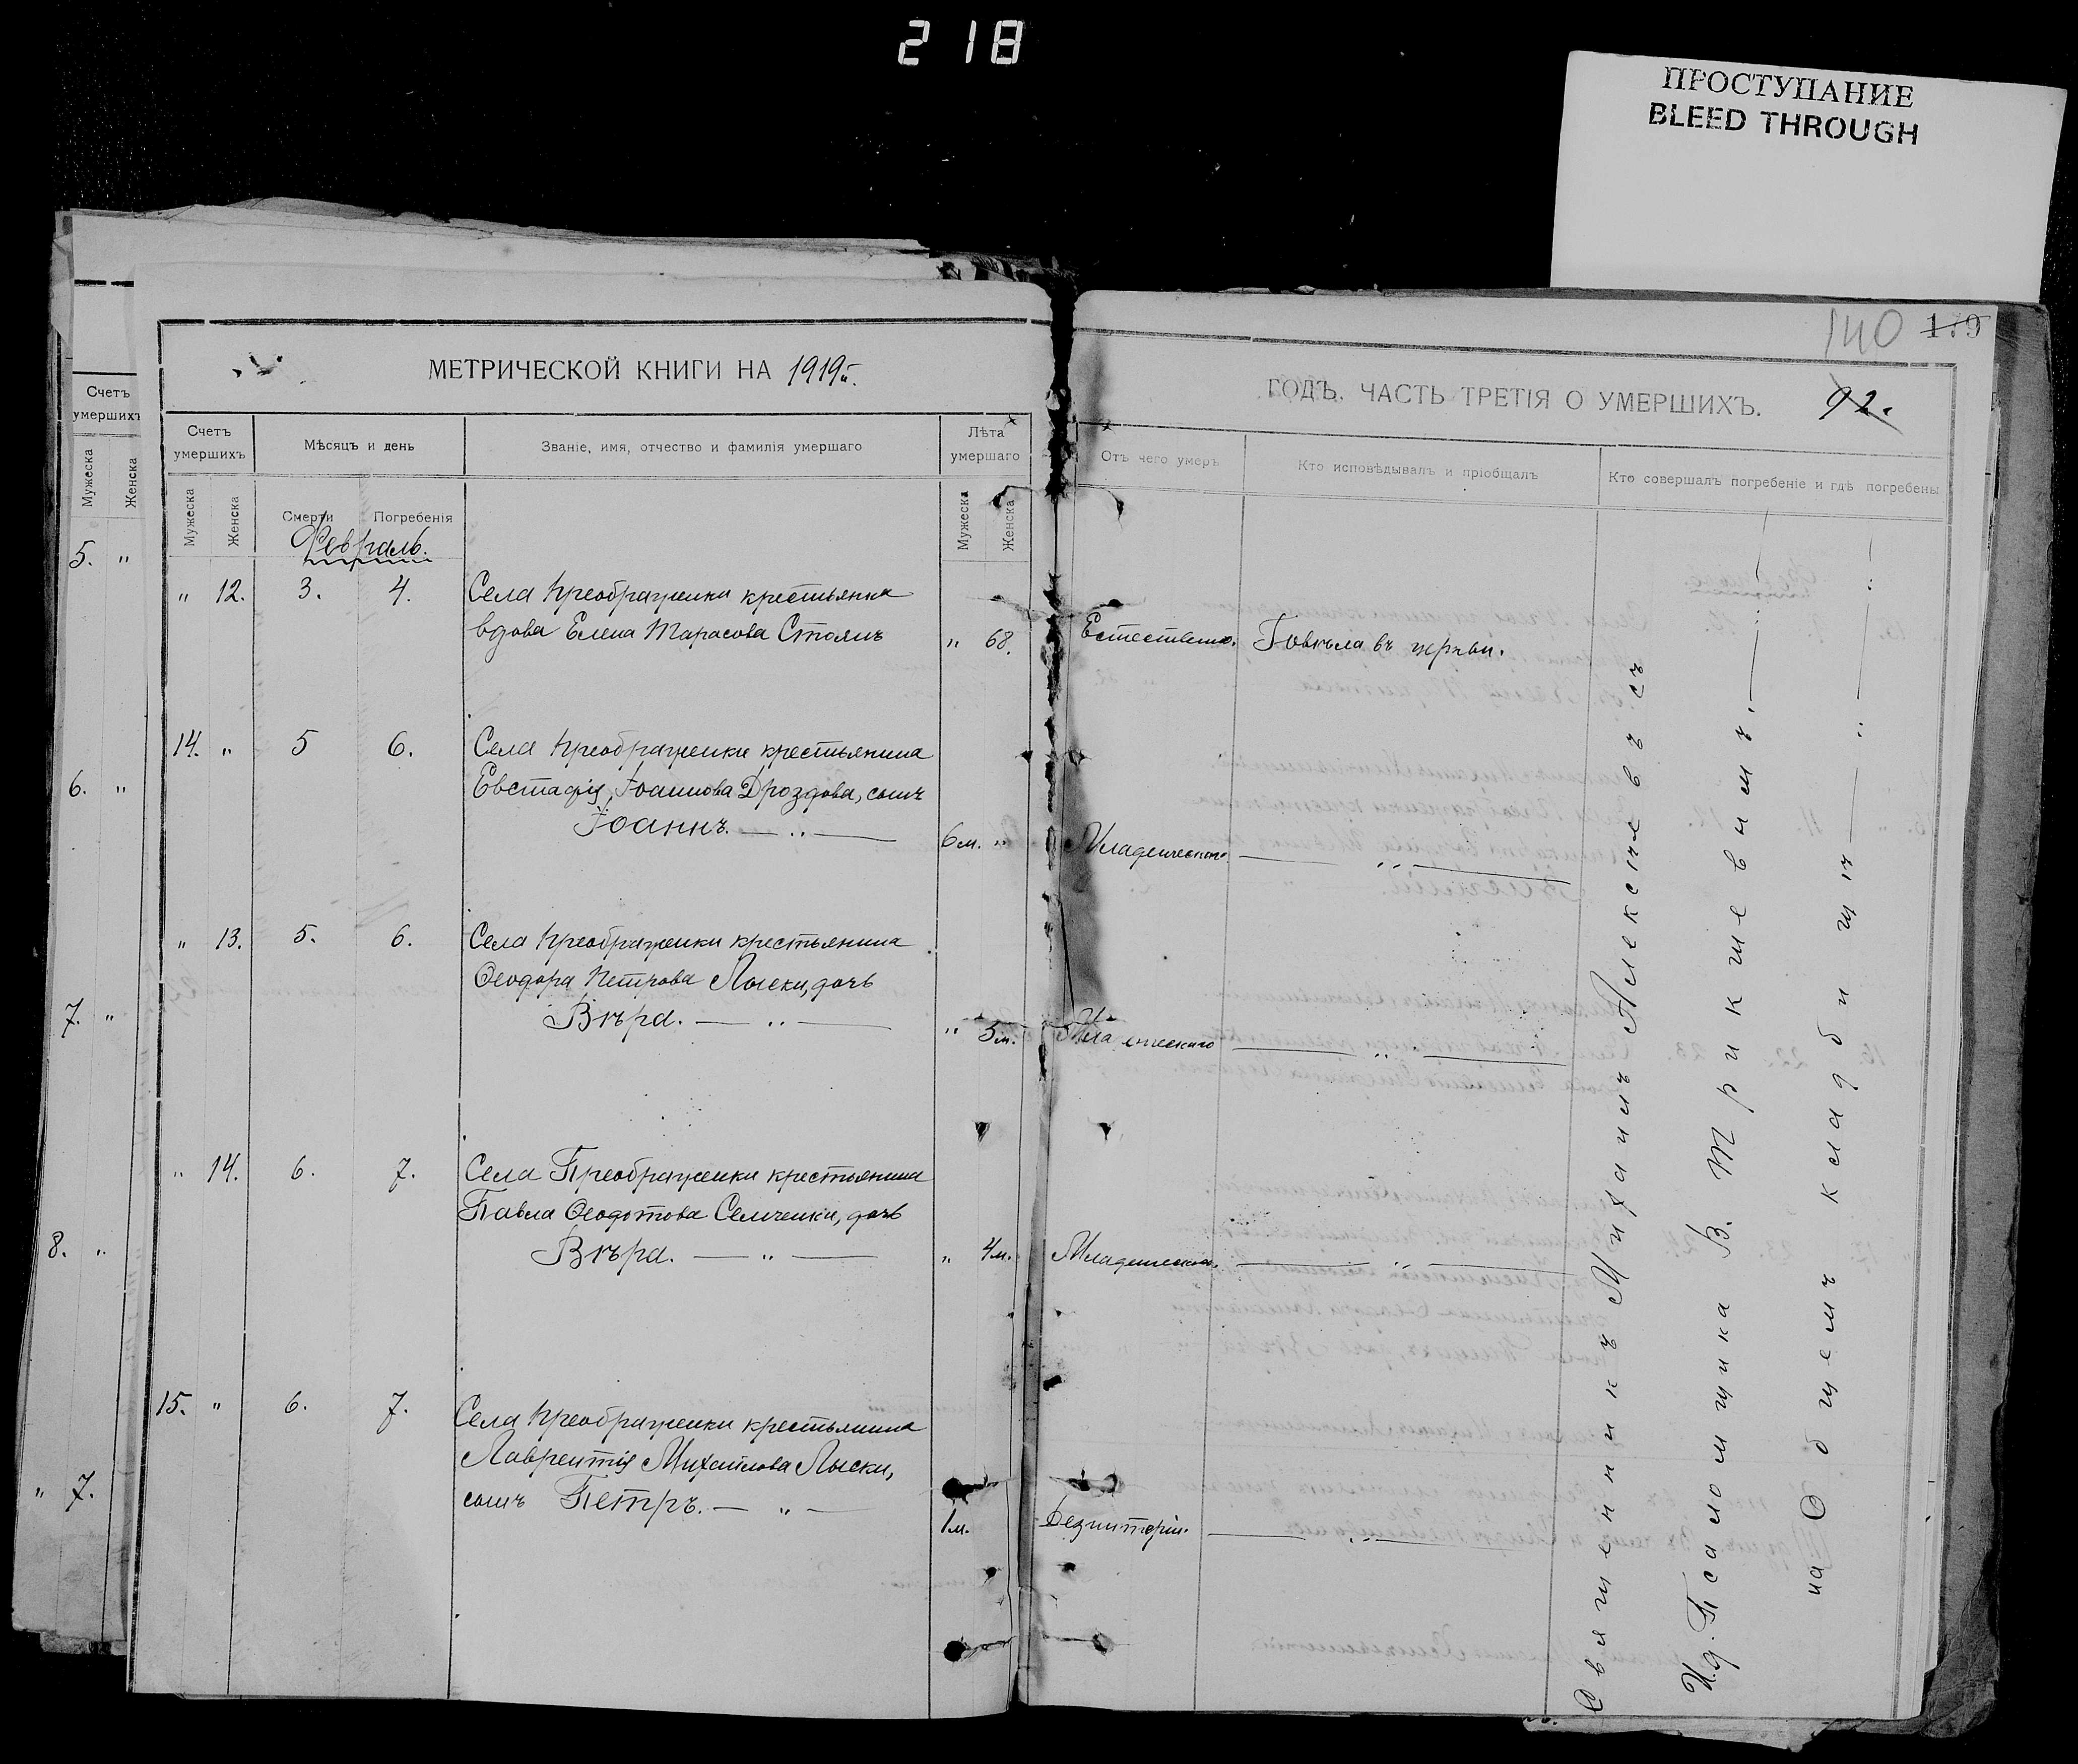 218
ПРОСТУПАНИЕ
BLEED THROUGH
140 179
МЕТРИЧЕСКОЙ КНИГИ НА 1919й.
ГОДЪ. ЧАСТЬ ТРЕТІЯ О УМЕРШИХЪ. 92.
Счетъ умершихъ
Мужеска
Женска
5. "
6. "
7. "
8. "
" 7.
Счетъ умершихъ
Мѣсяцъ и день
Званіе, имя, отчество и фамилія умершаго
Лѣта умершаго
Отъ чего умеръ
Кто исповѣдывалъ и пріобщалъ
Кто совершалъ погребеніе и гдѣ погребены
Мужеска
Женска
Смерти
Погребенія
Мужеска
Женска
Февраль.
" 12. 3. 4. Села Преображенки крестьянка
вдова Елена Тарасова Стоянъ " 68. Естественно. Говѣла въ церкви.
14. " 5 6. Села Преображенки крестьянина
Евстафія Іоаннова Дроздова, сынъ
Іоаннъ. — " — 6 м. " Младенческаго — " —
" 13. 5. 6. Села Преображенки крестьянина
Ѳеодора Петрова Лыски, дочь
Вѣра. — " — " 5 м. — " —
" 14. 6. 7. Села Преображенки крестьянина
Павла Ѳеодотова Семченки, дочь
Вѣра. — " — " 4 м. Младенческаго. — " —
15. " 6. 7. Села Преображенки крестьянина
Лаврентія Михайлова Лыски,
сынъ Петръ. — " — 1 м. Дезинтерія. — " —
Священникъ Михаилъ Алексѣевъ съ
И.д. Псаломщика В. Трикшевымъ. — " —
на Общемъ кладбищѣ — " — " —